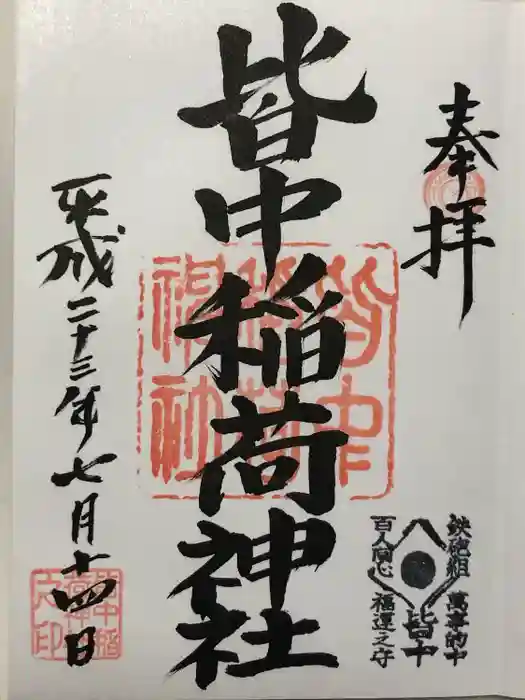 奉拝
皆中稲荷神社
平成二十三年七月十四日
鉄砲組
百人同心
萬事的中
福運之守
皆中
皆中稲荷神社